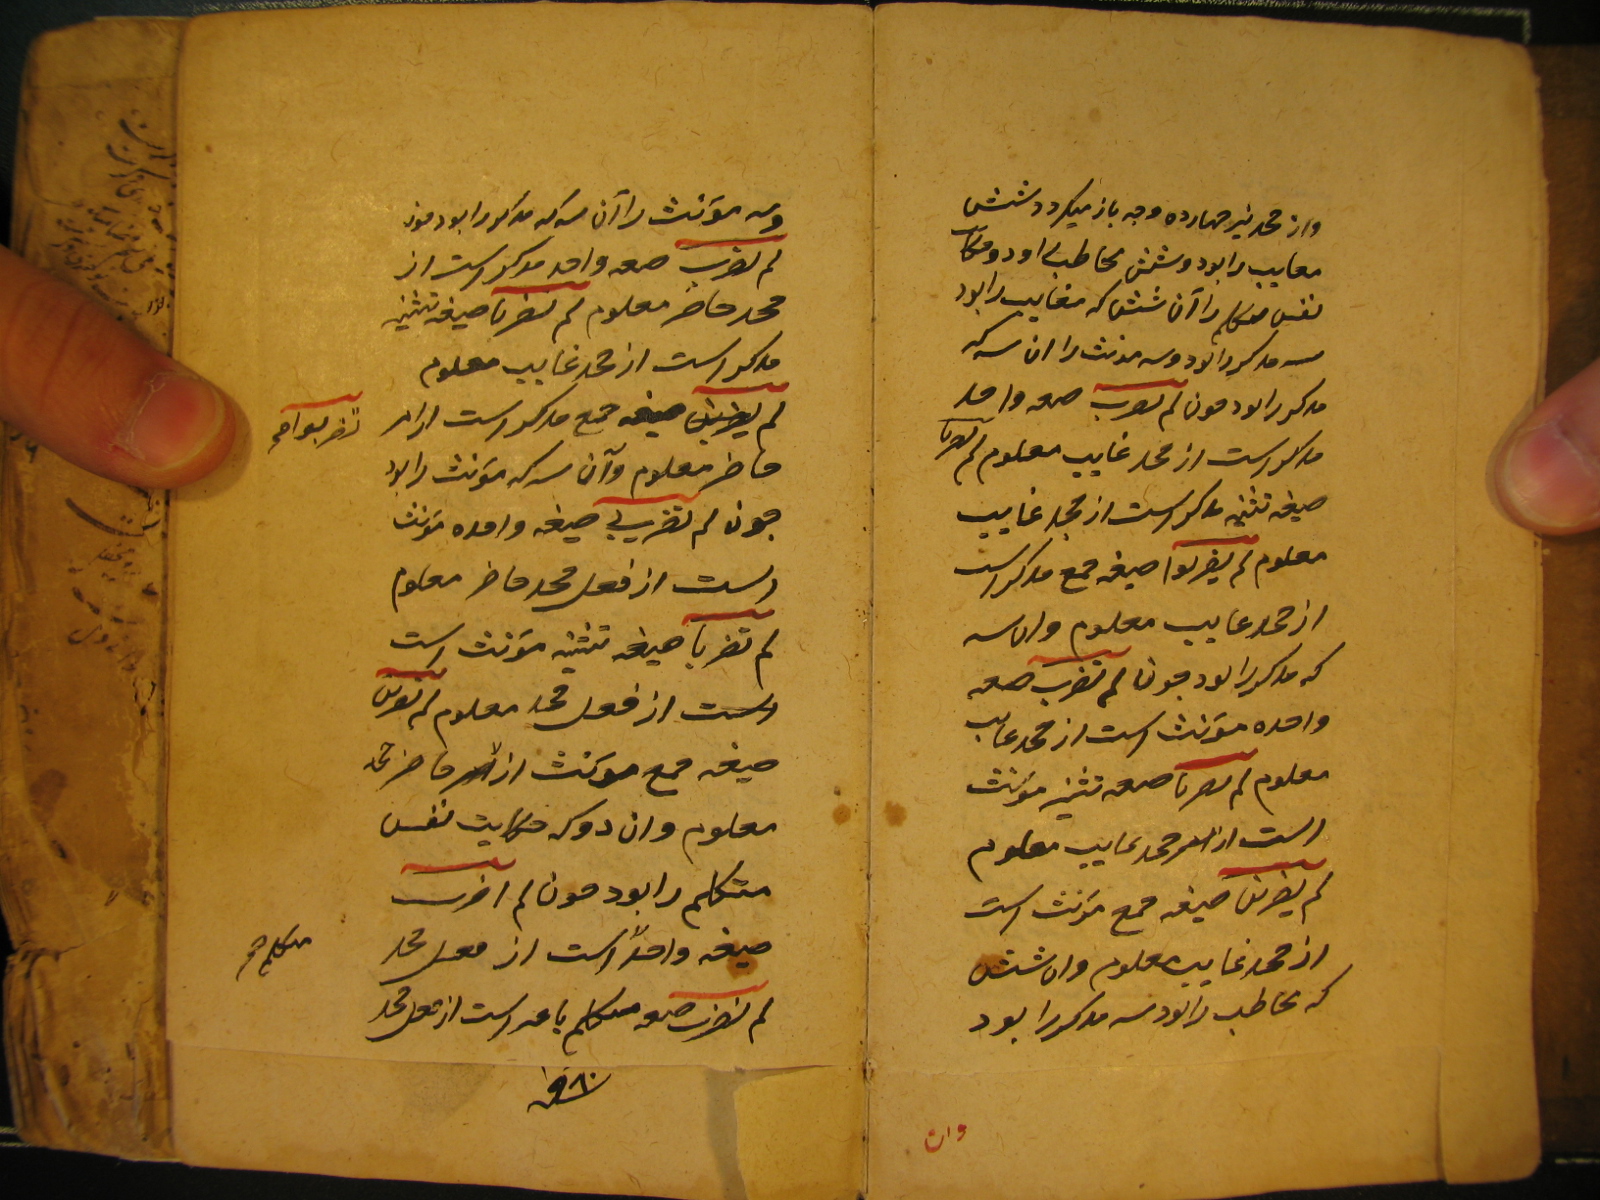 واز جحد نیز چهارده وجه باز میگردد شش
مغایب را بود و شش مخاطب را و دو حکایت
نفس متکلم را آن شش که مغایب را بود
سه مذکر را بود و سه مونث را ان سه که
مذکر را بود چون لم یضرب صیغه واحد
مذکر است از جحد غایب معلوم لم یضربا
صیغه تثنیه مذکر است از جحد غایب
معلوم لم یضربوا صیغه جمع مذکر است
از جحد غایب معلوم وان سه
که مذکر را بود چون لم تضرب صیغه
واحده مؤنث است از جحد غایب
معلوم لم تضربا صیغه تثنیه مؤنث
است از جحد غایب معلوم
لم یضربن صیغه جمع مؤنث است
از جحد غایب معلوم وان شش
که مخاطب را بود سه مذکر را بود
وان
وسه مؤنث را آن سه که مذکر را بود چون
لم تضرب صیغه واحد مذکر است از
جحد حاضر معلوم لم تضربا صیغه تثنیه
مذکر است از جحد غایب معلوم
لم صیغه جمع مذکر است از
حاضر معلوم وآن سه که مؤنث را بود
چون لم تضربی صیغه واحده مؤنث
است از فعل جحد حاضر معلوم
لم تضربا صیغه تثنیه مؤنث است
است از فعل جحد معلوم لم تضربن
صیغه جمع مؤنث از حاضر جحد
معلوم وان دو که حکایت نفس
متکلم را بود چون لم اضرب
صیغه واحد است از فعل جحد
لم نضرب صیغه متکلم با غیر است از فعل جحد
تضربوا صح
متکلم صح